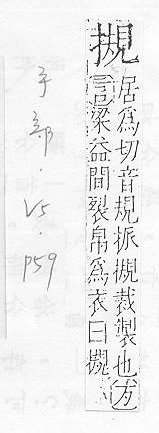 摫
居爲切音規振摫裁製也方
言梁益間裂帛爲衣曰摫
手部·V5·P59